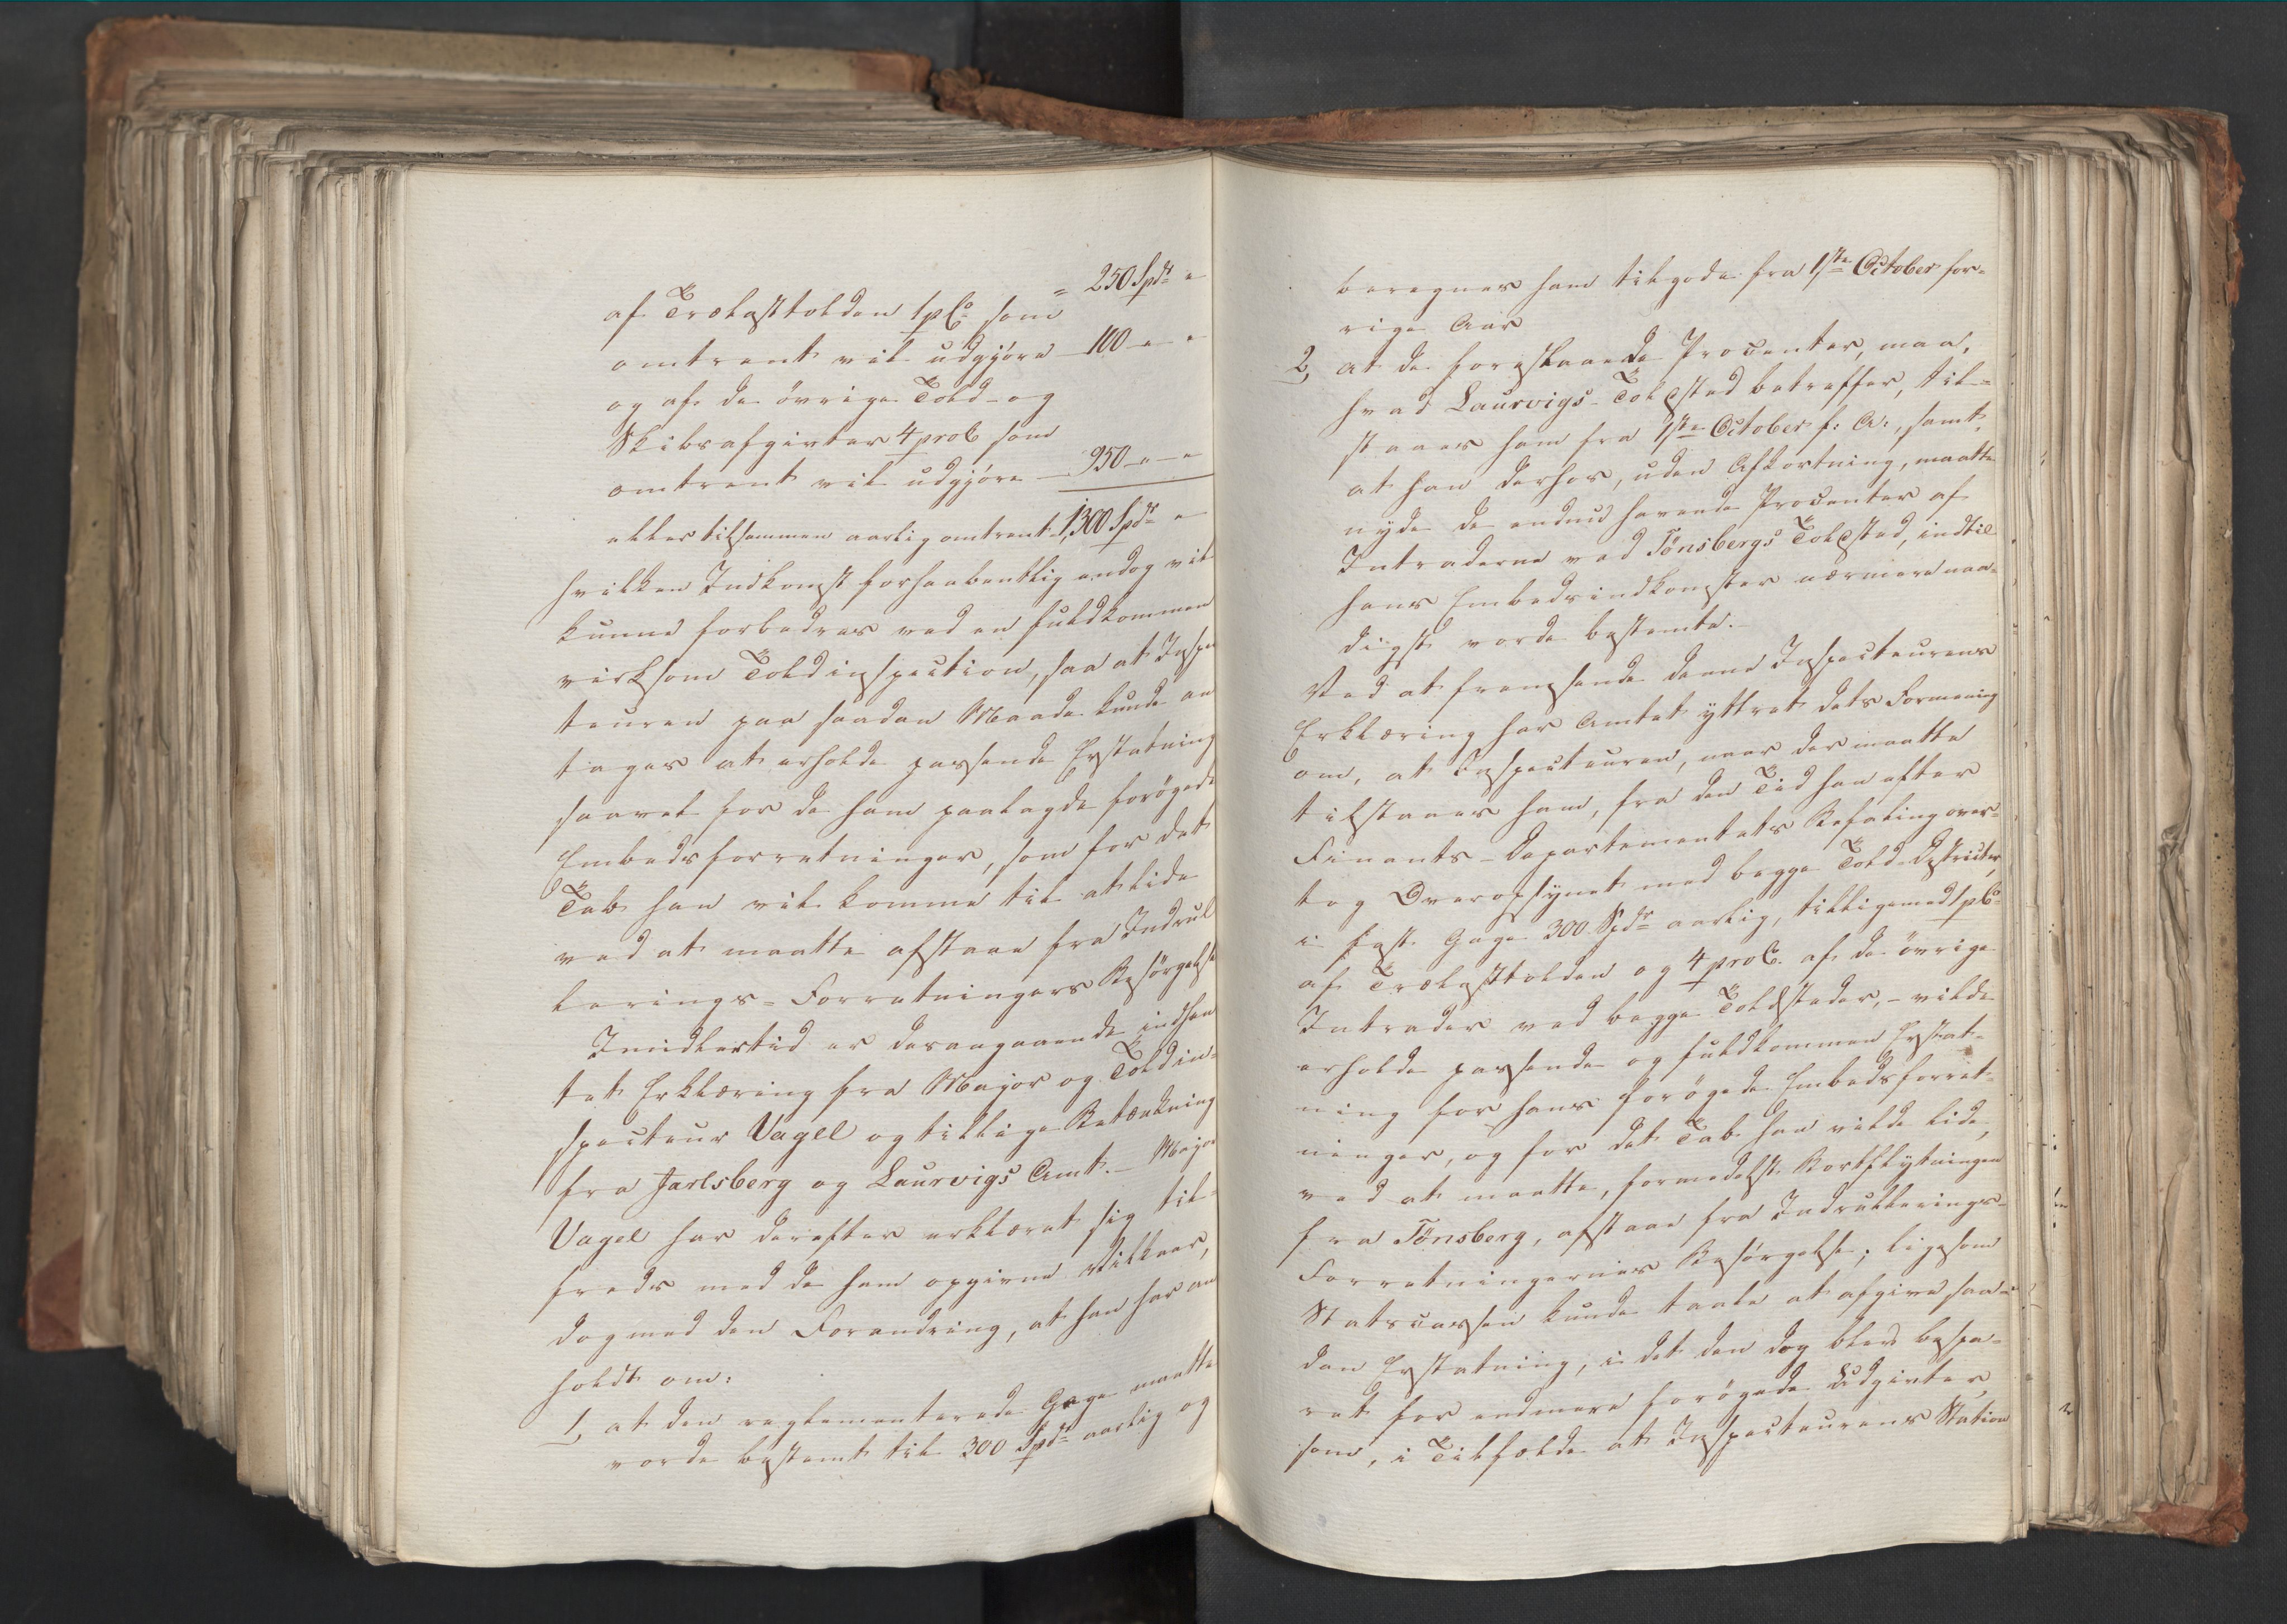 = 250 Spdr "
af Trælasttolden 1 pCo som
omtrent vil udgjøre - 100 - "
og af de övrige Told- og
Skibsafgivter 4 proC som
omtrent vil udgjöre - 950 - " - "
eller tilsammen aarlig omtrent 1,300 Spdr "
hvilken Indkomst forhaabentlig endog vil
kunne forbedres ved en fuldkommen
virksom Toldinspection, saa at Inspec
teuren paa saadan Maade kunde an
tages at erholde passende Erstatning
saavel for de ham paalagde forögede
Embedsforretninger, som for det
Tab han vil komme til at lide
ved at maatte afstaae fra Indrul
lerings-Forretningers Besörgelse
Imidlertid er desangaaende indhen
tet Erklæring fra Major og Toldin-
specteur Vagel og tillige Betænkning
fra Jarlsberg og Laurvigs Amt. - Major
Vagel har derefter erklæret sig til-
freds med de ham opgivne Vilkaar,
dog med den Forandring, at han har an
holdt om:
1, at den reglementerede Gage maatte
vorde bestemt til 300 Spdr aarlig og
beregnes ham tilgode fra 1ste October for-
rige Aar
2, at de foreslaaede Procenter, maa,
hvad Laurvigs-Toldsted betreffer, til-
staaes ham fra 1ste October f: A:, samt,
at han derhos, uden Afkortning, maatte
nyde de endnu havende Procenter af
Intraderne ved Tönsbergs Toldsted, indtil
hans Embedsindkomster nærmere naa-
digst vorde bestemte. -
Ved at fremsende denne Inspecteurens
Erklæring har Amtet yttret dets Formening
om, at Inspecteuren, naar der maatte
tilstaaes ham, fra den Tid han efter
Finants-Departementets Befaling over-
tog Overopsynet med begge Told-Districter,
i fast Gage 300 Spdr aarlig, tilligemed 1 pCo
af Trælasttolden og 4 proC. af de övrige
Intrader ved begge Toldsteder, - vilde
erholde passende og fuldkommen Erstat-
ning for hans forögede Embedsforret-
ninger, og for det Tab han vilde lide,
ved at maatte, formedelst Bortflytningen
fra Tönsberg, afstaae fra Indrullerings-
Forretningernes Besörgelse; ligesom
Statscassen kunde taale at afgive saa-
dan Erstatning, i det den dog blev bespa-
ret for endmere forögede Udgivter,
som, i Tilfælde at Inspecteurens Station